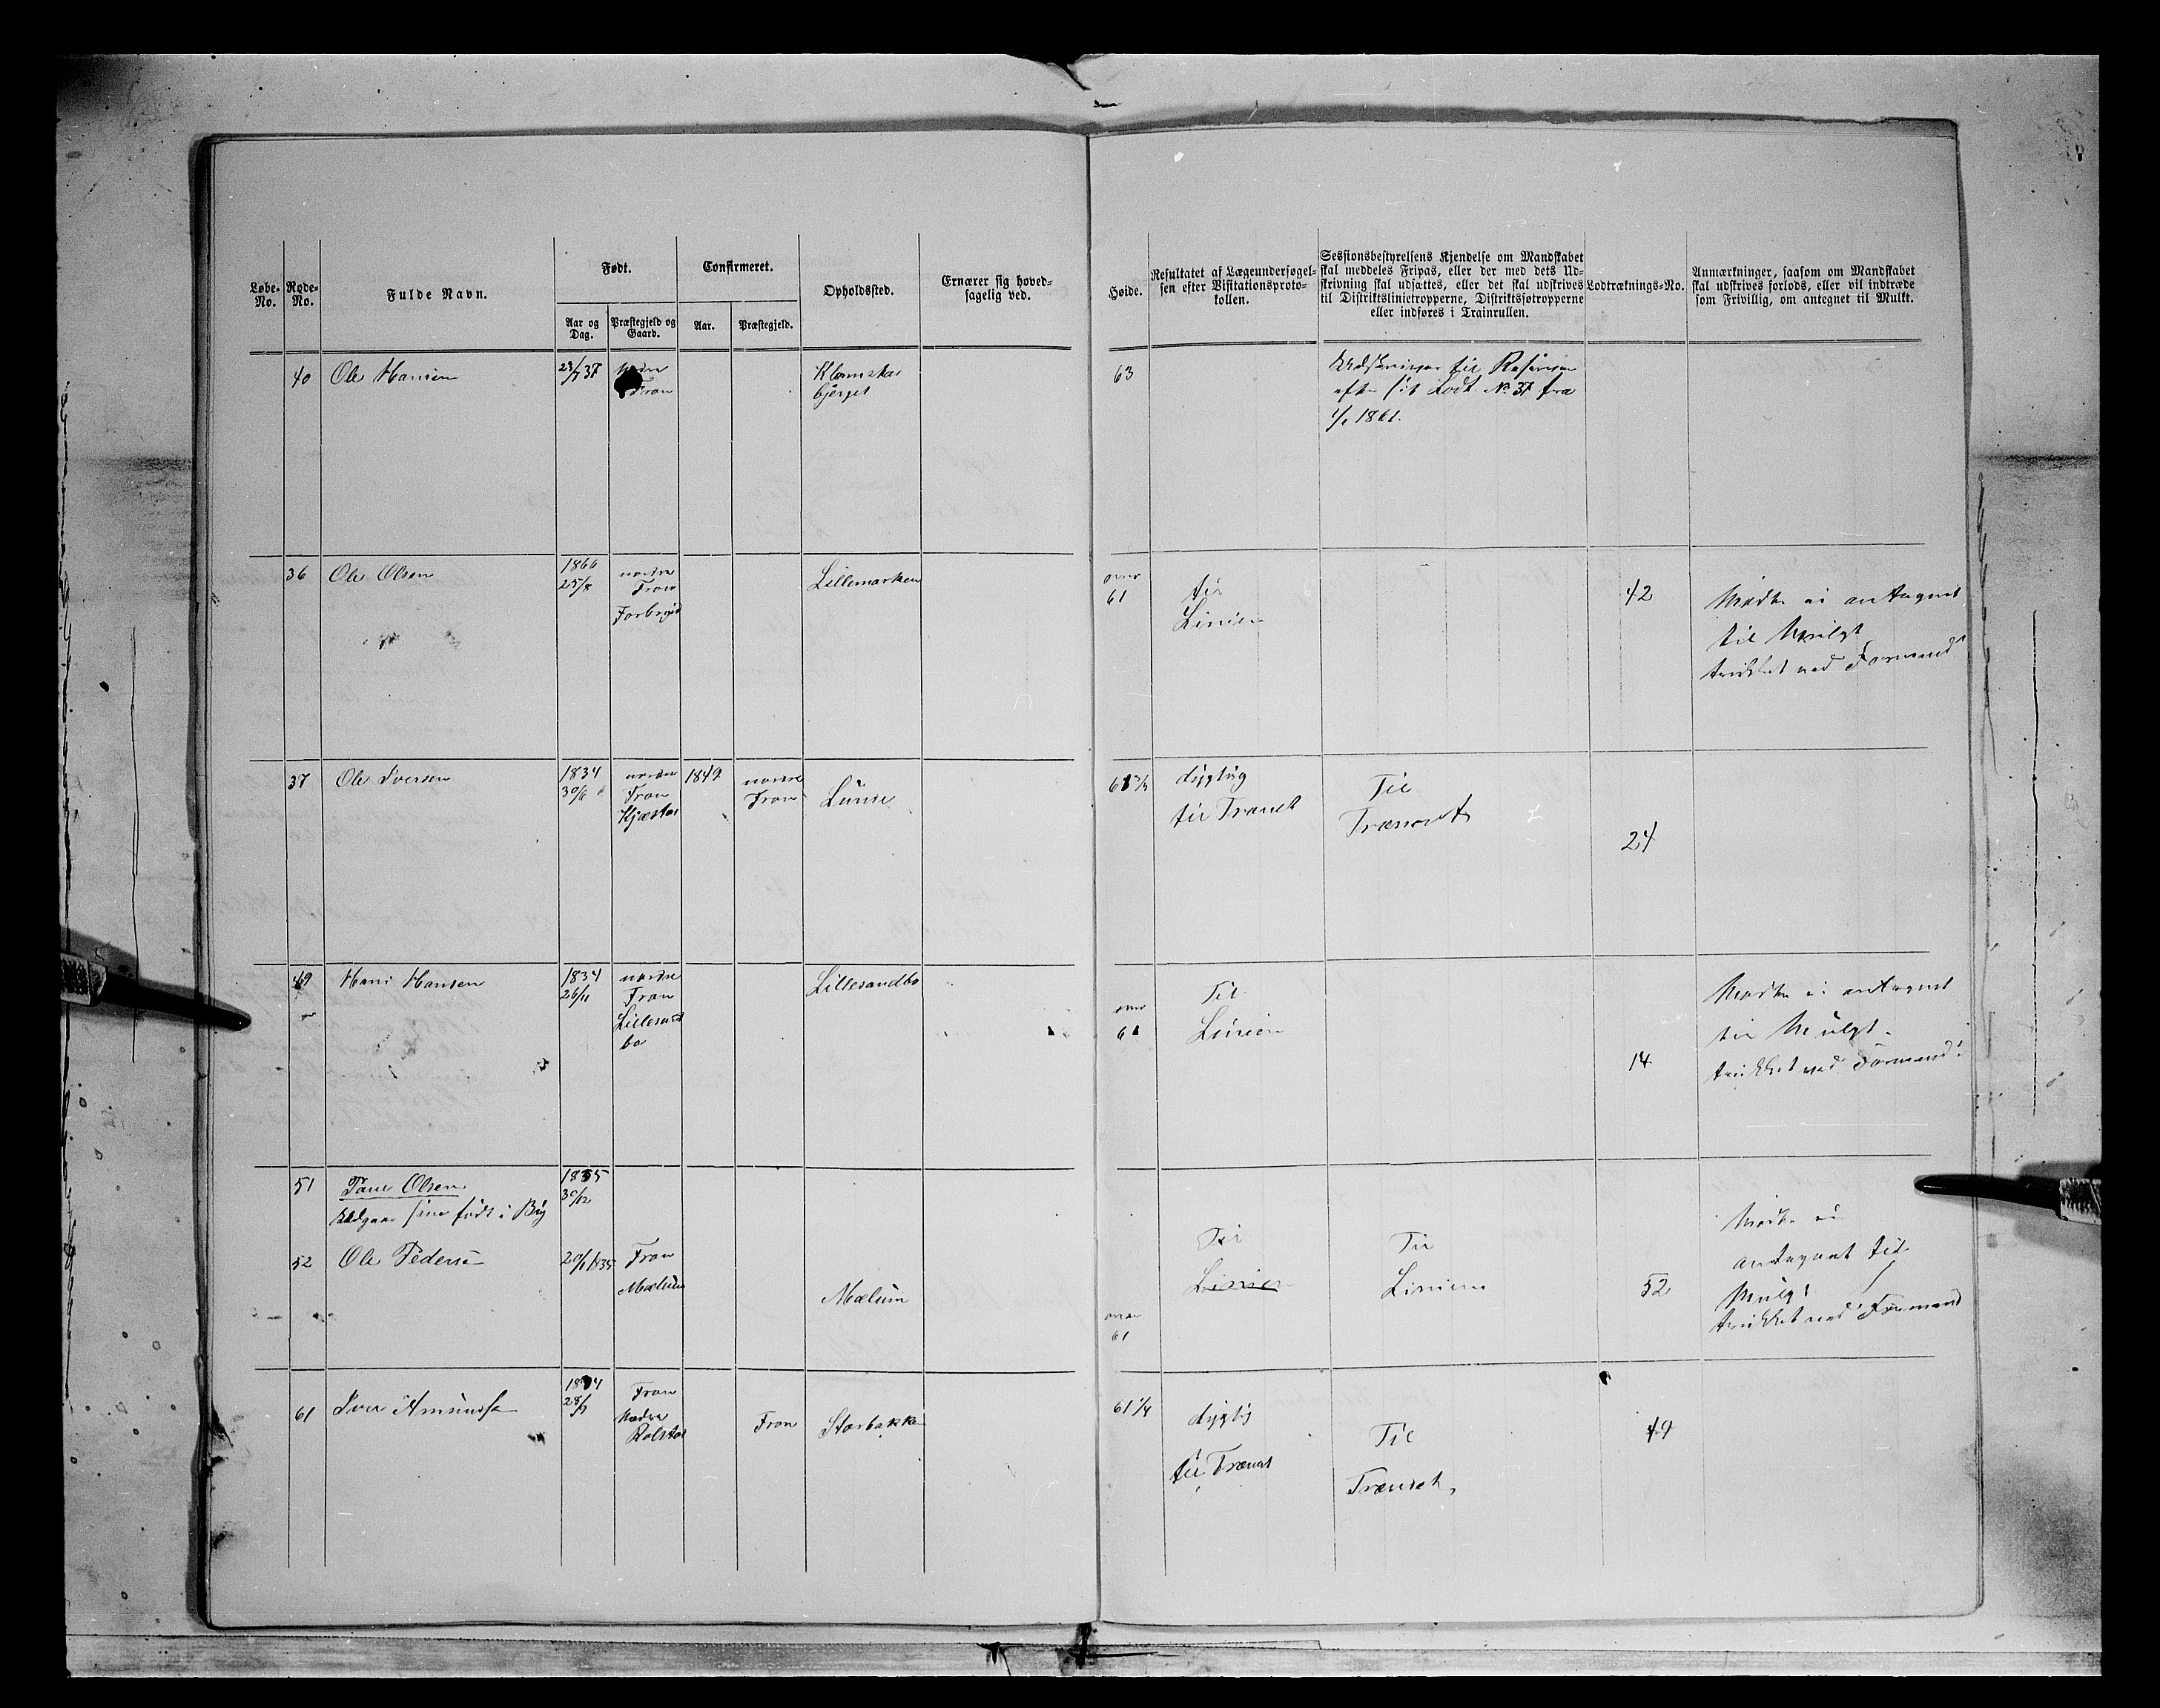 Løbe-No.
Rode-No.
Fulde Navn.
Født.
Aar og Dag.
Præstegjeld og Gaard.
Confirmeret.
Aar.
Præstegjeld.
Opholdssted.
Ernærer sig hoved-
sagelig ved.
Høide.
Resultatet af Lægeundersøgel-
sen efter Visitationsproto-
kollen.
Sessionsbestyrelsens Kjendelse om Mandskabet
skal meddeles Fripas, eller der med dets Ud-
skrivning skal udsættes, eller det skal udskrives
til Distriktslinietropperne, Distriktsfotropperne
eller indføres i Trainrullen.
Lodtræknings-No.
Anmærkninger, saasom om Mandskabet
skal udskrives forlods, eller vil indtræde
som Frivillig, om antegnet til Mulkt.
40 Ole Hansen 23/7 37
Fron
63
efter sit Lodt. No 37 fra
1/1 1861.
36 Ole Olsen 1866
25/8
nordre
Fron
Lillemarken
over
61
til
Linien
42
Mødte ei antegnet
til Mulgt
trukket ved Formand
37 Ole Iversen 1834
30/6
nordre
Fron
Kjæstad
1849
nordre
Fron
61 3/4
dygtig
til Trænet
Til
Trænet
24
49 Hans Hansen 1834
26/11
nordre
Fron
Lillesand
bo
Lillesandbo
over
61
Til
Linien
14
Mødte ei antegnet
til Mulgt.
trukket ved Formand
51 Olsen 1835
30/12
født i
52 Ole Pedersen 20/1 1835
Fron
Mælum
Mælum
over
61
Til
Linien
Til
Linien
52
Mødte ei
antegnet til
Mulgt
trukket ved Formand
61 Iver Amundsen 1834
28/7
Fron
Nedre
Rolstad
Fron
Storbakke
61 1/4
dygtig
til Trænet
Til
Trænet
49